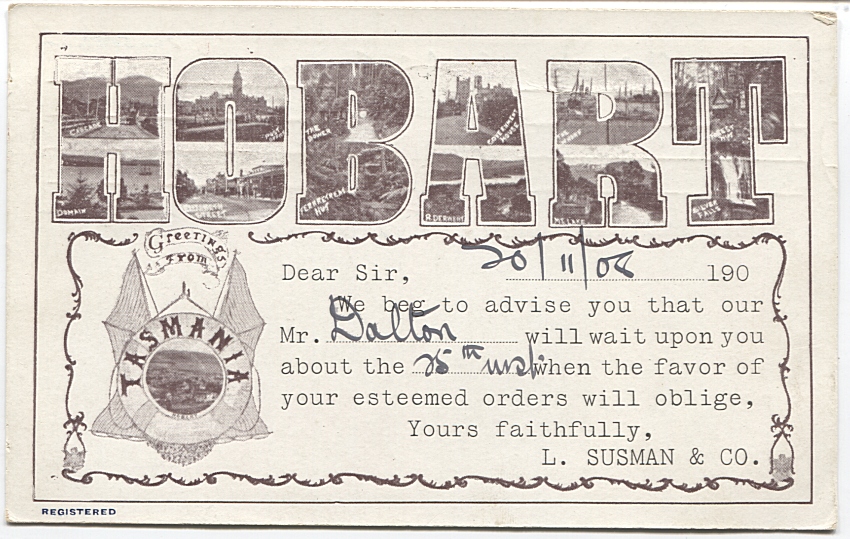 HOBART
CASCADE
POST OFFICE
FERN BOWER
GOVERNMENT HOUSE
THE
DOMAIN
ELIZABETH STREET
HUT
R. DERWENT
MT. LAKE
SILVER FALLS
Greetings
From
TASMANIA
Dear Sir, 20/11/08 190
We beg to advise you that our
Mr. Dalton will wait upon you
about the 25th inst. when the favor of
your esteemed orders will oblige,
Yours faithfully,
L. SUSMAN & CO.
REGISTERED